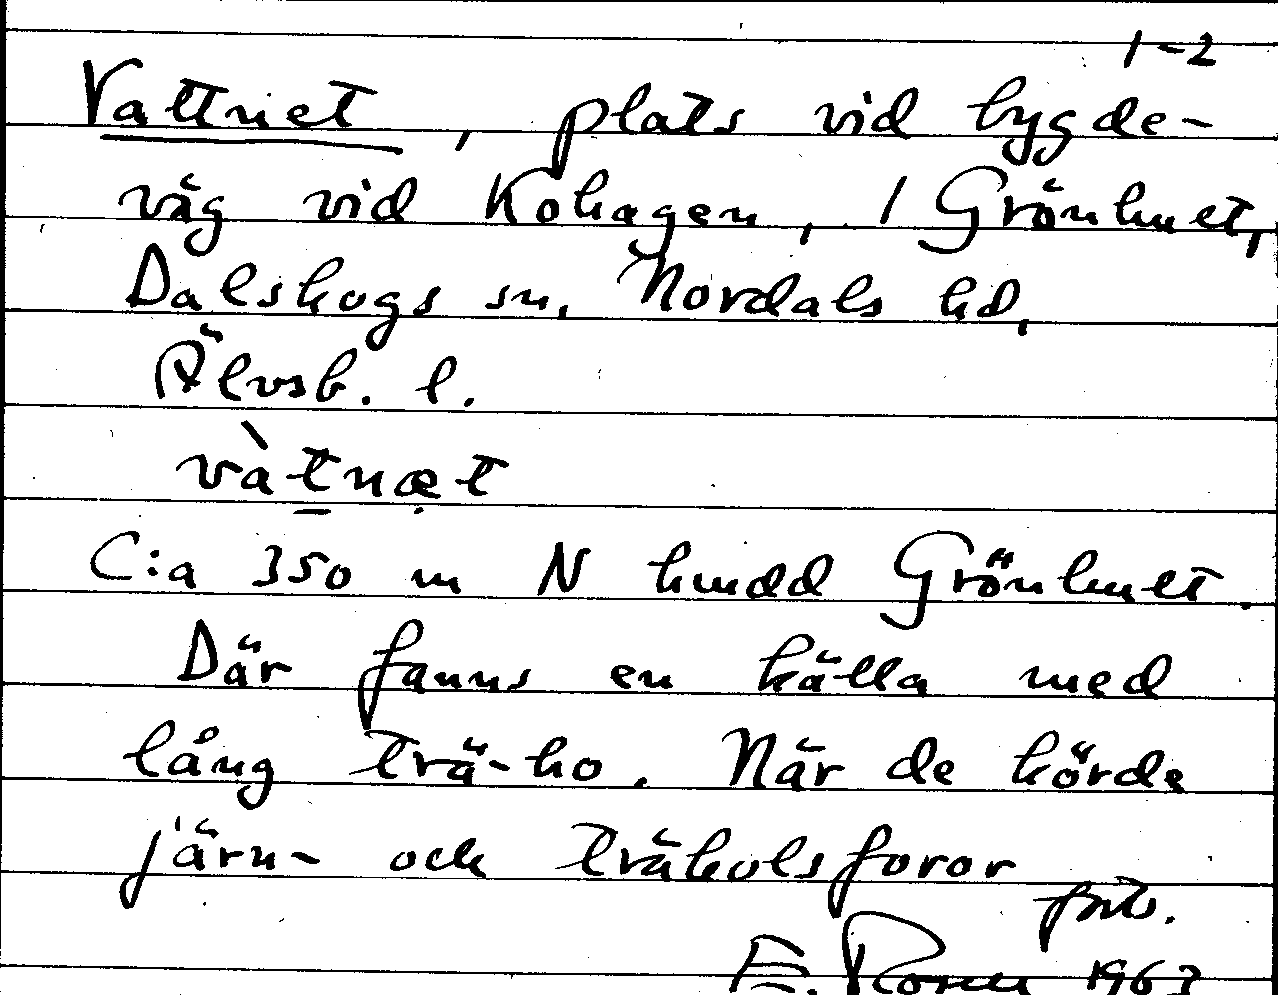 1-2
Vattnet, plats vid bygde-
väg vid Kohagen, 1 Grönhult,
Dalskogs sn, Nordals hd,
Älvsb. l.
vàtnæt
C:a 350 m N hmdd Grönhult.
Där fanns en källa med
lång trä-ho. När de körde
järn- och träkolsforor
forts.
E. Rosell 1963